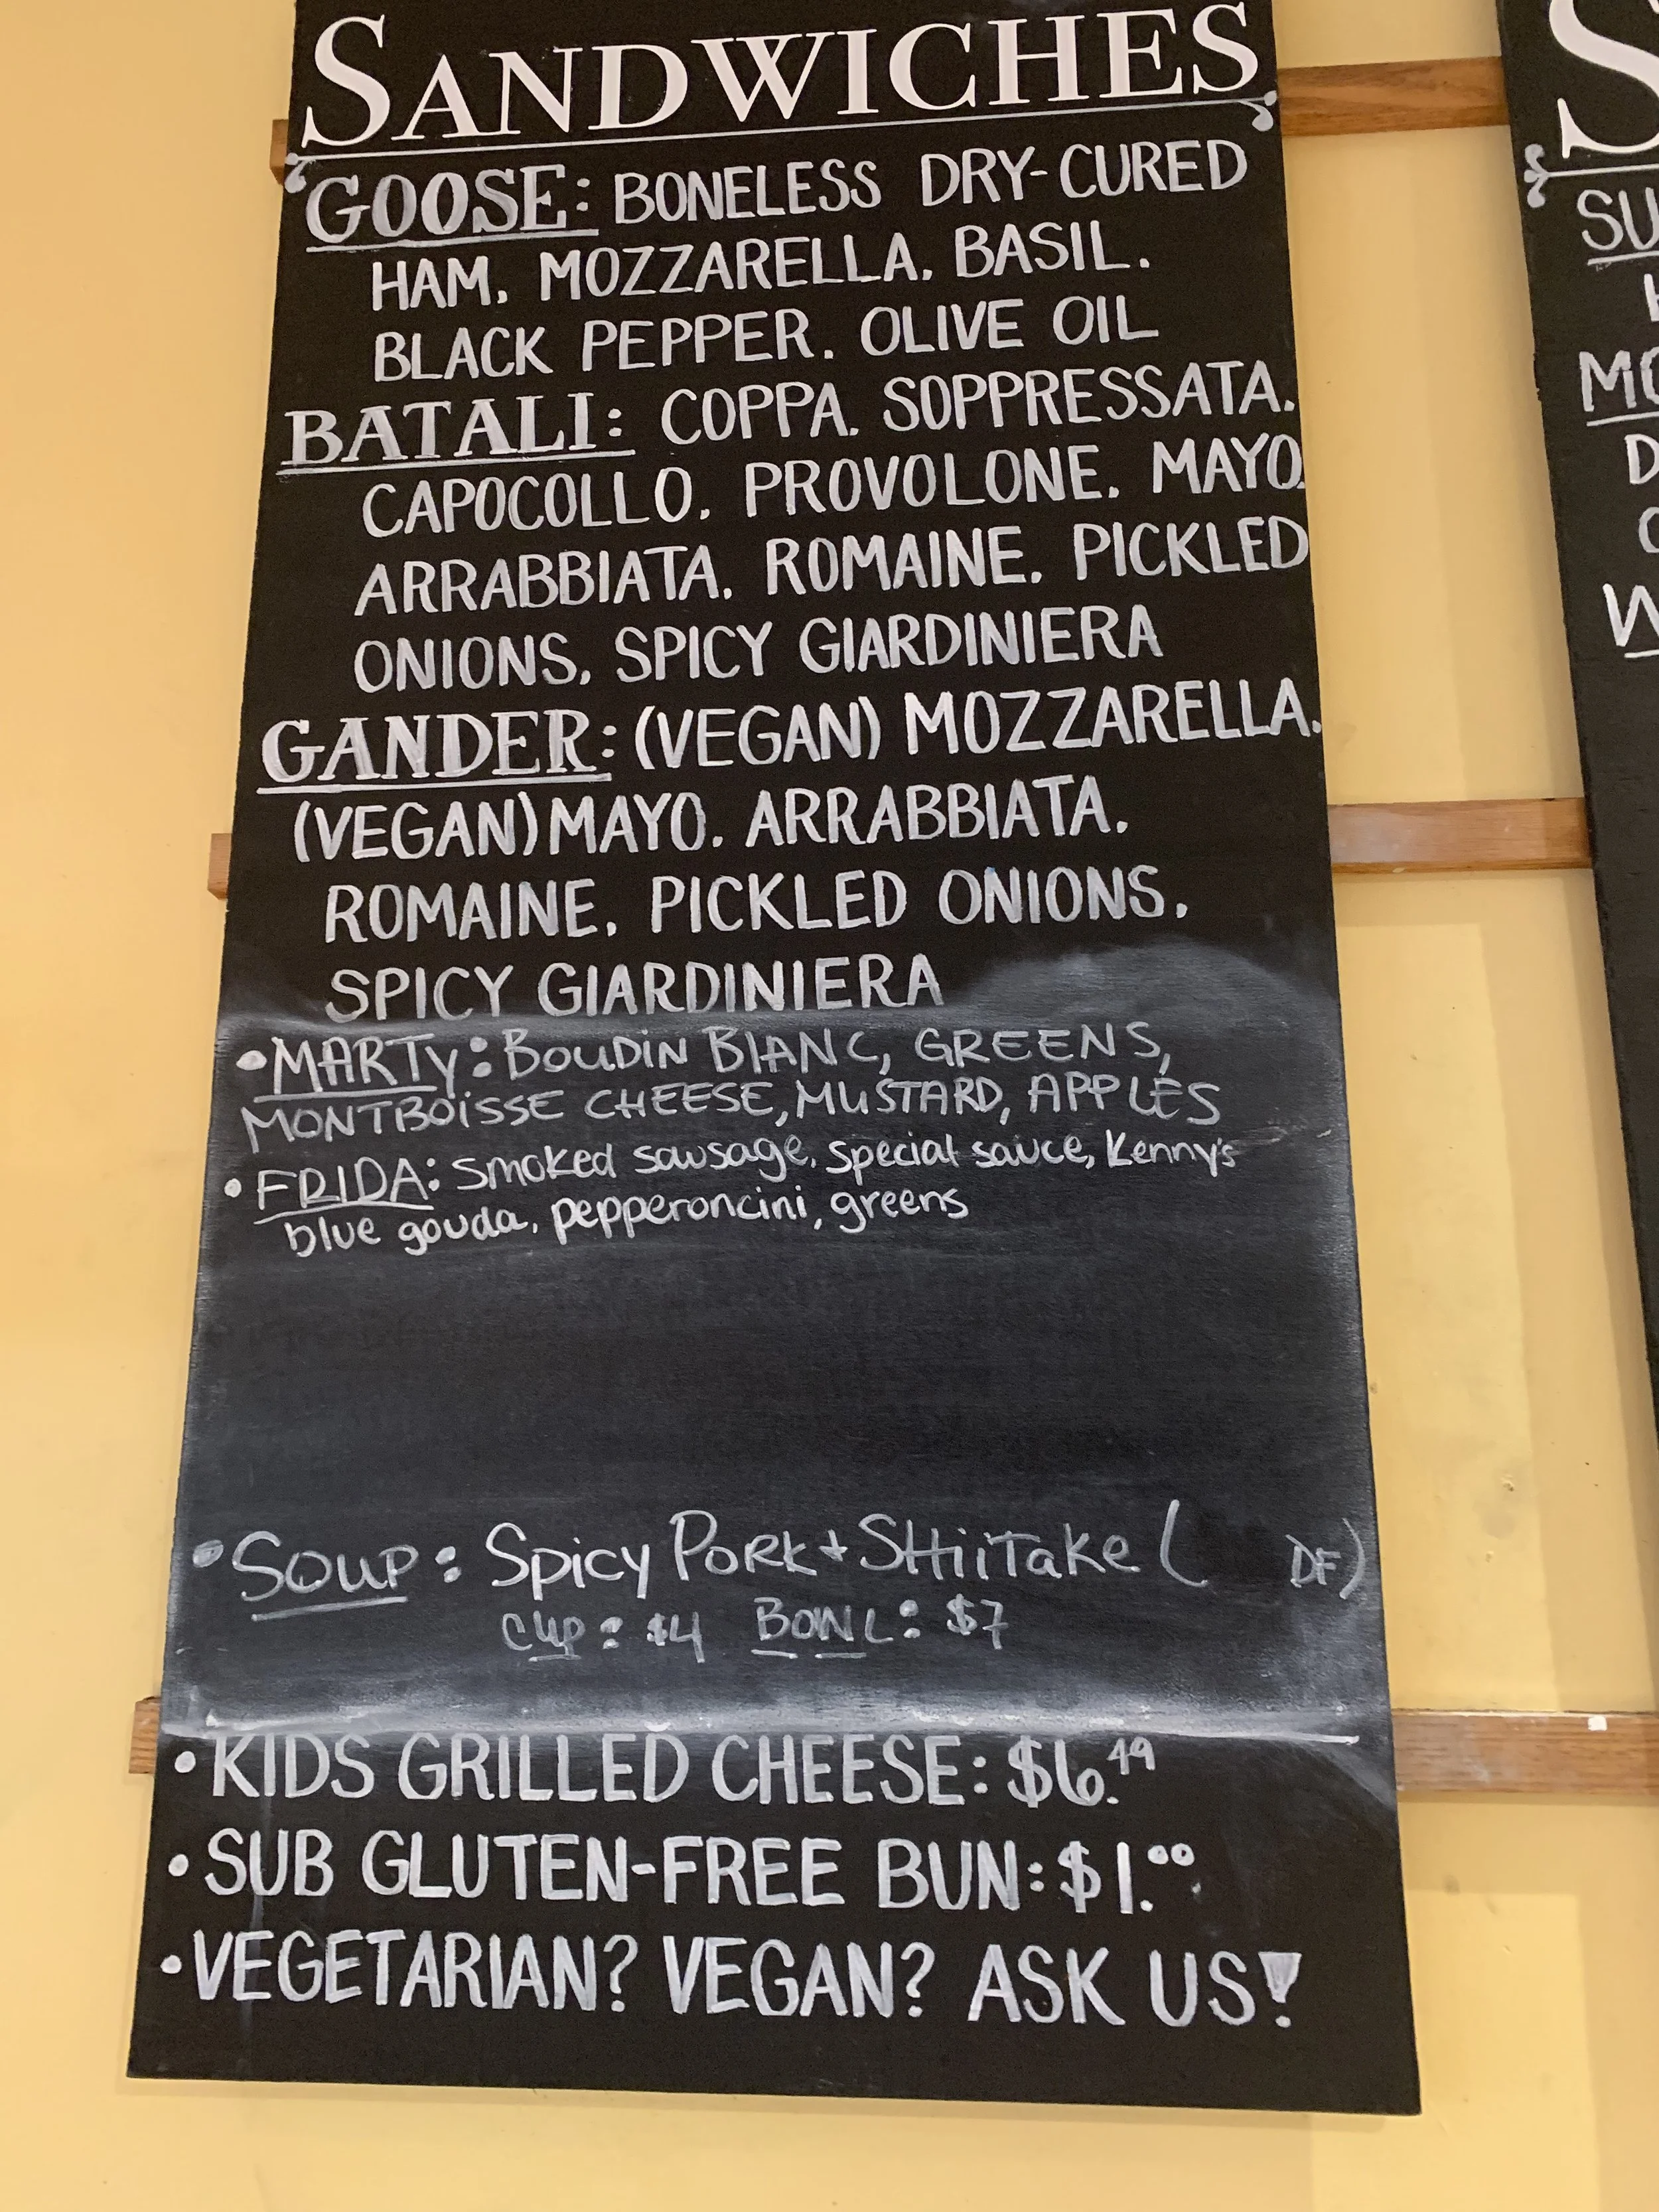 SANDWICHES
GOOSE: BONELESS DRY-CURED
HAM. MOZZARELLA. BASIL.
BLACK PEPPER. OLIVE OIL
BATALI: COPPA. SOPPRESSATA.
CAPOCOLLO. PROVOLONE. MAYO.
ARRABBIATA. ROMAINE. PICKLED
ONIONS. SPICY GIARDINIERA
GANDER: (VEGAN) MOZZARELLA.
(VEGAN) MAYO. ARRABBIATA.
ROMAINE. PICKLED ONIONS.
SPICY GIARDINIERA
• MARTY: BOUDIN BLANC, GREENS,
MONTBOISSE CHEESE, MUSTARD, APPLES
• FRIDA: smoked sausage, special sauce, Kenny's
blue gouda, pepperoncini, greens
• SOUP: Spicy PORK + SHIITAKE ( DF)
CUP: $4 BOWL: $7
• KIDS GRILLED CHEESE: $6.49
• SUB GLUTEN-FREE BUN: $1.00
• VEGETARIAN? VEGAN? ASK US!
S
SU
MO
D
W